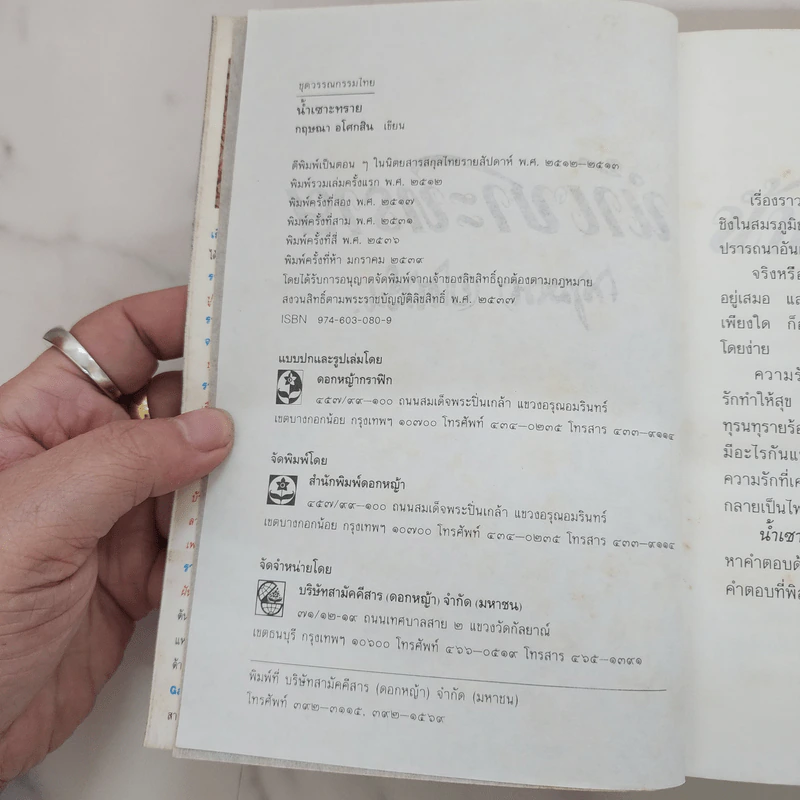 ชุดวรรณกรรมไทย
น้ำเซาะทราย
กฤษณา อโศกสิน เขียน
ตีพิมพ์เป็นตอน ๆ ในนิตยสารสกุลไทยรายสัปดาห์ พ.ศ. ๒๕๑๒–๒๕๑๓
พิมพ์รวมเล่มครั้งแรก พ.ศ. ๒๕๑๒
พิมพ์ครั้งที่สอง พ.ศ. ๒๕๑๗
พิมพ์ครั้งที่สาม พ.ศ. ๒๕๓๑
พิมพ์ครั้งที่สี่ พ.ศ. ๒๕๓๖
พิมพ์ครั้งที่ห้า มกราคม ๒๕๓๙
โดยได้รับการอนุญาตจัดพิมพ์จากเจ้าของลิขสิทธิ์ถูกต้องตามกฎหมาย
สงวนสิทธิ์ตามพระราชบัญญัติลิขสิทธิ์ พ.ศ. ๒๕๓๗
ISBN 974-603-080-9
แบบปกและรูปเล่มโดย
ดอกหญ้ากราฟิก
๔๕๗/๙๙–๑๐๐ ถนนสมเด็จพระปิ่นเกล้า แขวงอรุณอมรินทร์
เขตบางกอกน้อย กรุงเทพฯ ๑๐๗๐๐ โทรศัพท์ ๔๓๔–๐๒๓๕ โทรสาร ๔๓๓–๙๑๑๔
จัดพิมพ์โดย
สำนักพิมพ์ดอกหญ้า
๔๕๗/๙๙–๑๐๐ ถนนสมเด็จพระปิ่นเกล้า แขวงอรุณอมรินทร์
เขตบางกอกน้อย กรุงเทพฯ ๑๐๗๐๐ โทรศัพท์ ๔๓๔–๐๒๓๕ โทรสาร ๔๓๓–๙๑๑๔
จัดจำหน่ายโดย
บริษัทสามัคคีสาร (ดอกหญ้า) จำกัด (มหาชน)
๗๑/๑๒-๑๙ ถนนเทศบาลสาย ๒ แขวงวัดกัลยาณ์
เขตธนบุรี กรุงเทพฯ ๑๐๖๐๐ โทรศัพท์ ๔๖๖–๐๕๑๙ โทรสาร ๔๖๕–๑๓๙๑
พิมพ์ที่ บริษัทสามัคคีสาร (ดอกหญ้า) จำกัด (มหาชน)
โทรศัพท์ ๓๙๒–๓๑๑๕, ๓๙๒–๑๕๖๙
เรื่องราว
ชิงในสมรภูมิ
ปรารถนาอัน
จริงหรือ
อยู่เสมอ แล
เพียงใด ก็
โดยง่าย
ความรั
รักทำให้สุข
ทุรนทุรายร้อ
มีอะไรกันแ
ความรักที่เค
กลายเป็นไฟ
น้ำเซา
หาคำตอบด้
คำตอบที่พิส